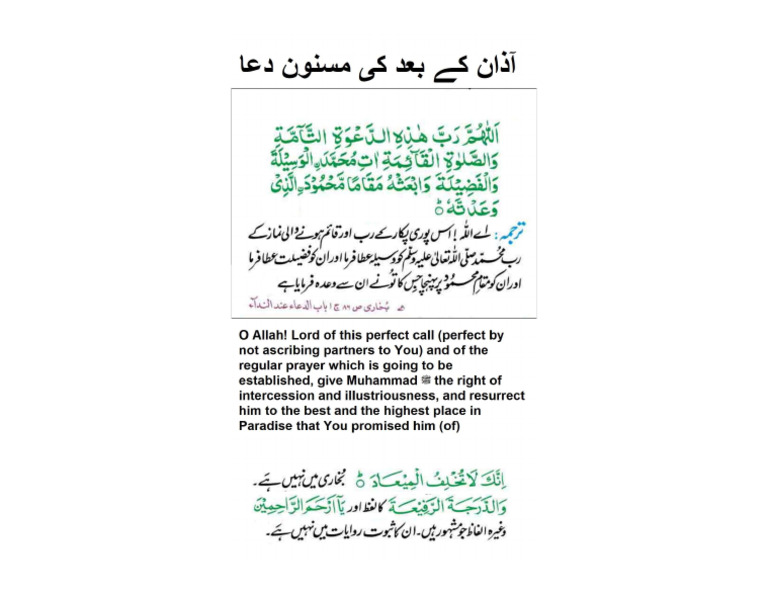 آذان کے بعد کی مسنون دعا
اَللّٰهُمَّ رَبَّ هٰذِهِ الدَّعْوَةِ التَّآمَّةِ
وَالصَّلٰوةِ الْقَآئِمَةِ اٰتِ مُحَمَّدَ نِ الْوَسِيْلَةَ
وَالْفَضِيْلَةَ وَابْعَثْهُ مَقَامًا مَّحْمُوْدَ نِ الَّذِیْ
وَعَدْتَّهٗ ط
ترجمہ: اے اللہ! اس پوری پکار کے رب اور قائم ہونے والی نماز کے
رب محمد صلی اللہ تعالیٰ علیہ وسلم کو وسیلہ عطا فرما اور ان کو فضیلت عطا فرما
اور ان کو مقام محمود پر پہنچا جس کا تُو نے ان سے وعدہ فرمایا ہے
بخاری ص ۸۶ ج ۱ باب الدعاء عند النداء
O Allah! Lord of this perfect call (perfect by
not ascribing partners to You) and of the
regular prayer which is going to be
established, give Muhammad ﷺ the right of
intercession and illustriousness, and resurrect
him to the best and the highest place in
Paradise that You promised him (of)
اِنَّكَ لَا تُخْلِفُ الْمِيْعَادَ ط بخاری میں نہیں ہے۔
وَالدَّرَجَةَ الرَّفِيْعَةَ کا لفظ اور يَآ اَرْحَمَ الرَّاحِمِيْنَ
وغیرہ الفاظ جو مشہور ہیں۔ ان کا ثبوت روایات میں نہیں ہے۔